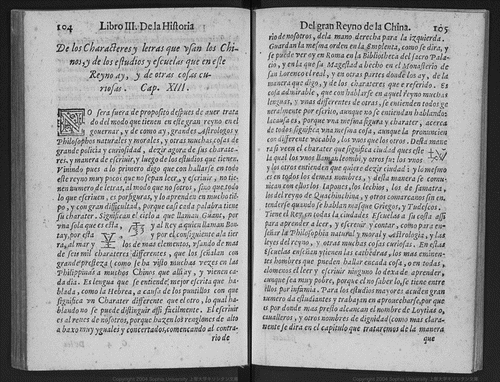 104 Libro III. De la Historia
De los Characteres y letras que vsan los Chi-
nos, y de los estudios y escuelas que en este
Reyno ay, y de otras cosas cu-
riosas. Cap. XIII.
NO sera fuera de proposito despues de auer trata
do del modo que tienen en este gran reyno en el
gouernar, y de como ay, grandes Astrologos y
Philosophos naturales y morales, y otras muchas cosas de
grande policia y curiosidad, dezir agora de sus charate-
res, y manera de escriuir, y luego de los estudios que tienen.
Viniendo pues a lo primero digo que con hallarse en todo
este reyno muy pocos que no sepan leer, y escriuir, no tie-
nen numero de letras, al modo que nosotros, sino que todo
lo que escriuen, es por figuras, y lo aprenden en mucho tiẽ-
po, y con gran difficultad, porque casi cada palabra tiene
su charater. Significan el cielo a que llaman Guant, por
vna sola que es esta, y al Rey a quien llaman Bon-
tay, por esta y por el consiguiente a la tier
ra, al mar y los de mas elementos, vsando de mas
de seis mil charateres differentes, y que los señalan con
grande presteza (como se ha visto muchas vezes en las
Philippinas a muchos Chinos que alli ay, y vienen ca-
da dia. Es lengua que se entiende mejor escrita que ha-
blada, como la Hebrea, a causa de los puntillos con que
significa vn Charater differente que el otro, lo qual ha
blando no se puede distinguir assi facilmente. El escriuir
es al reues de nosotros, porque hazen los renglones de alto
a baxo muy yguales y concertados, comenzando al contra-
rio de
Del gran Reyno de la China. 105
rio de nosotros, de la mano derecha para la izquierda.
Guardan la mesma orden en la Emplenta, como se dira, y
se puede ver oy en Roma en la Bibliotheca del sacro Pala-
cio, y en la que su Magestad a hecho en el Monasterio de
san Lorenço el real, y en otras partes donde los ay, de la
manera que digo, y de los charateres que e referido. Es
cosa admirable, que con hablarse en aquel Reyno muchas
lenguas, y vnas differentes de otras, se entienden todos ge
neralmente por escripto, aunque no se entiendan hablando.
La causa es, porque vna mesma figura y charater, acerca
de todos significa vna mesma cosa, aunque la pronuncien
con differente vocablo, los vnos que los otros. Desta mane
ra si veen el charater que significa ciudad que es este
la qual los vnos llaman leombi, y otros fu: los vnos
y los otros entienden que quiere dezir ciudad: y lo mesmo
es en todos los demas nombres, y desta manera se comu-
nican con ellos los Iapones, los lechios, los de Samatra,
los del reyno de Quachinchina, y otros comarcanos sin en-
tenderse quando se hablan mas que Griegos, y Tudescos.
Tiene el Rey en todas las ciudades Escuelas a su costa assi
para aprender a leer, y escriuir, y contar, como para en-
señar la Philosophia natural, y moral y Astrologia, y las
leyes del reyno, y otras muchas cosas curiosas. En estas
Escuelas enseñan y tienen las cathedras, los mas eminen-
tes hombres que pueden hallar en cada cosa, o en todas,
alomenos el leer y escriuir ninguno lo dexa de aprender,
aunque sea muy pobre, porque el no saberlo, se tiene entre
ellos por infamia. Para los estudios mayores acuden gran
numero de estudiantes y trabajan en aprouecharse, por que
es por donde mas presto alcançan el nombre de Loytias o,
caualleros, y otros nombres de dignidad (como mas clara-
mente se dira en el capitulo que trataremos de la manera
que